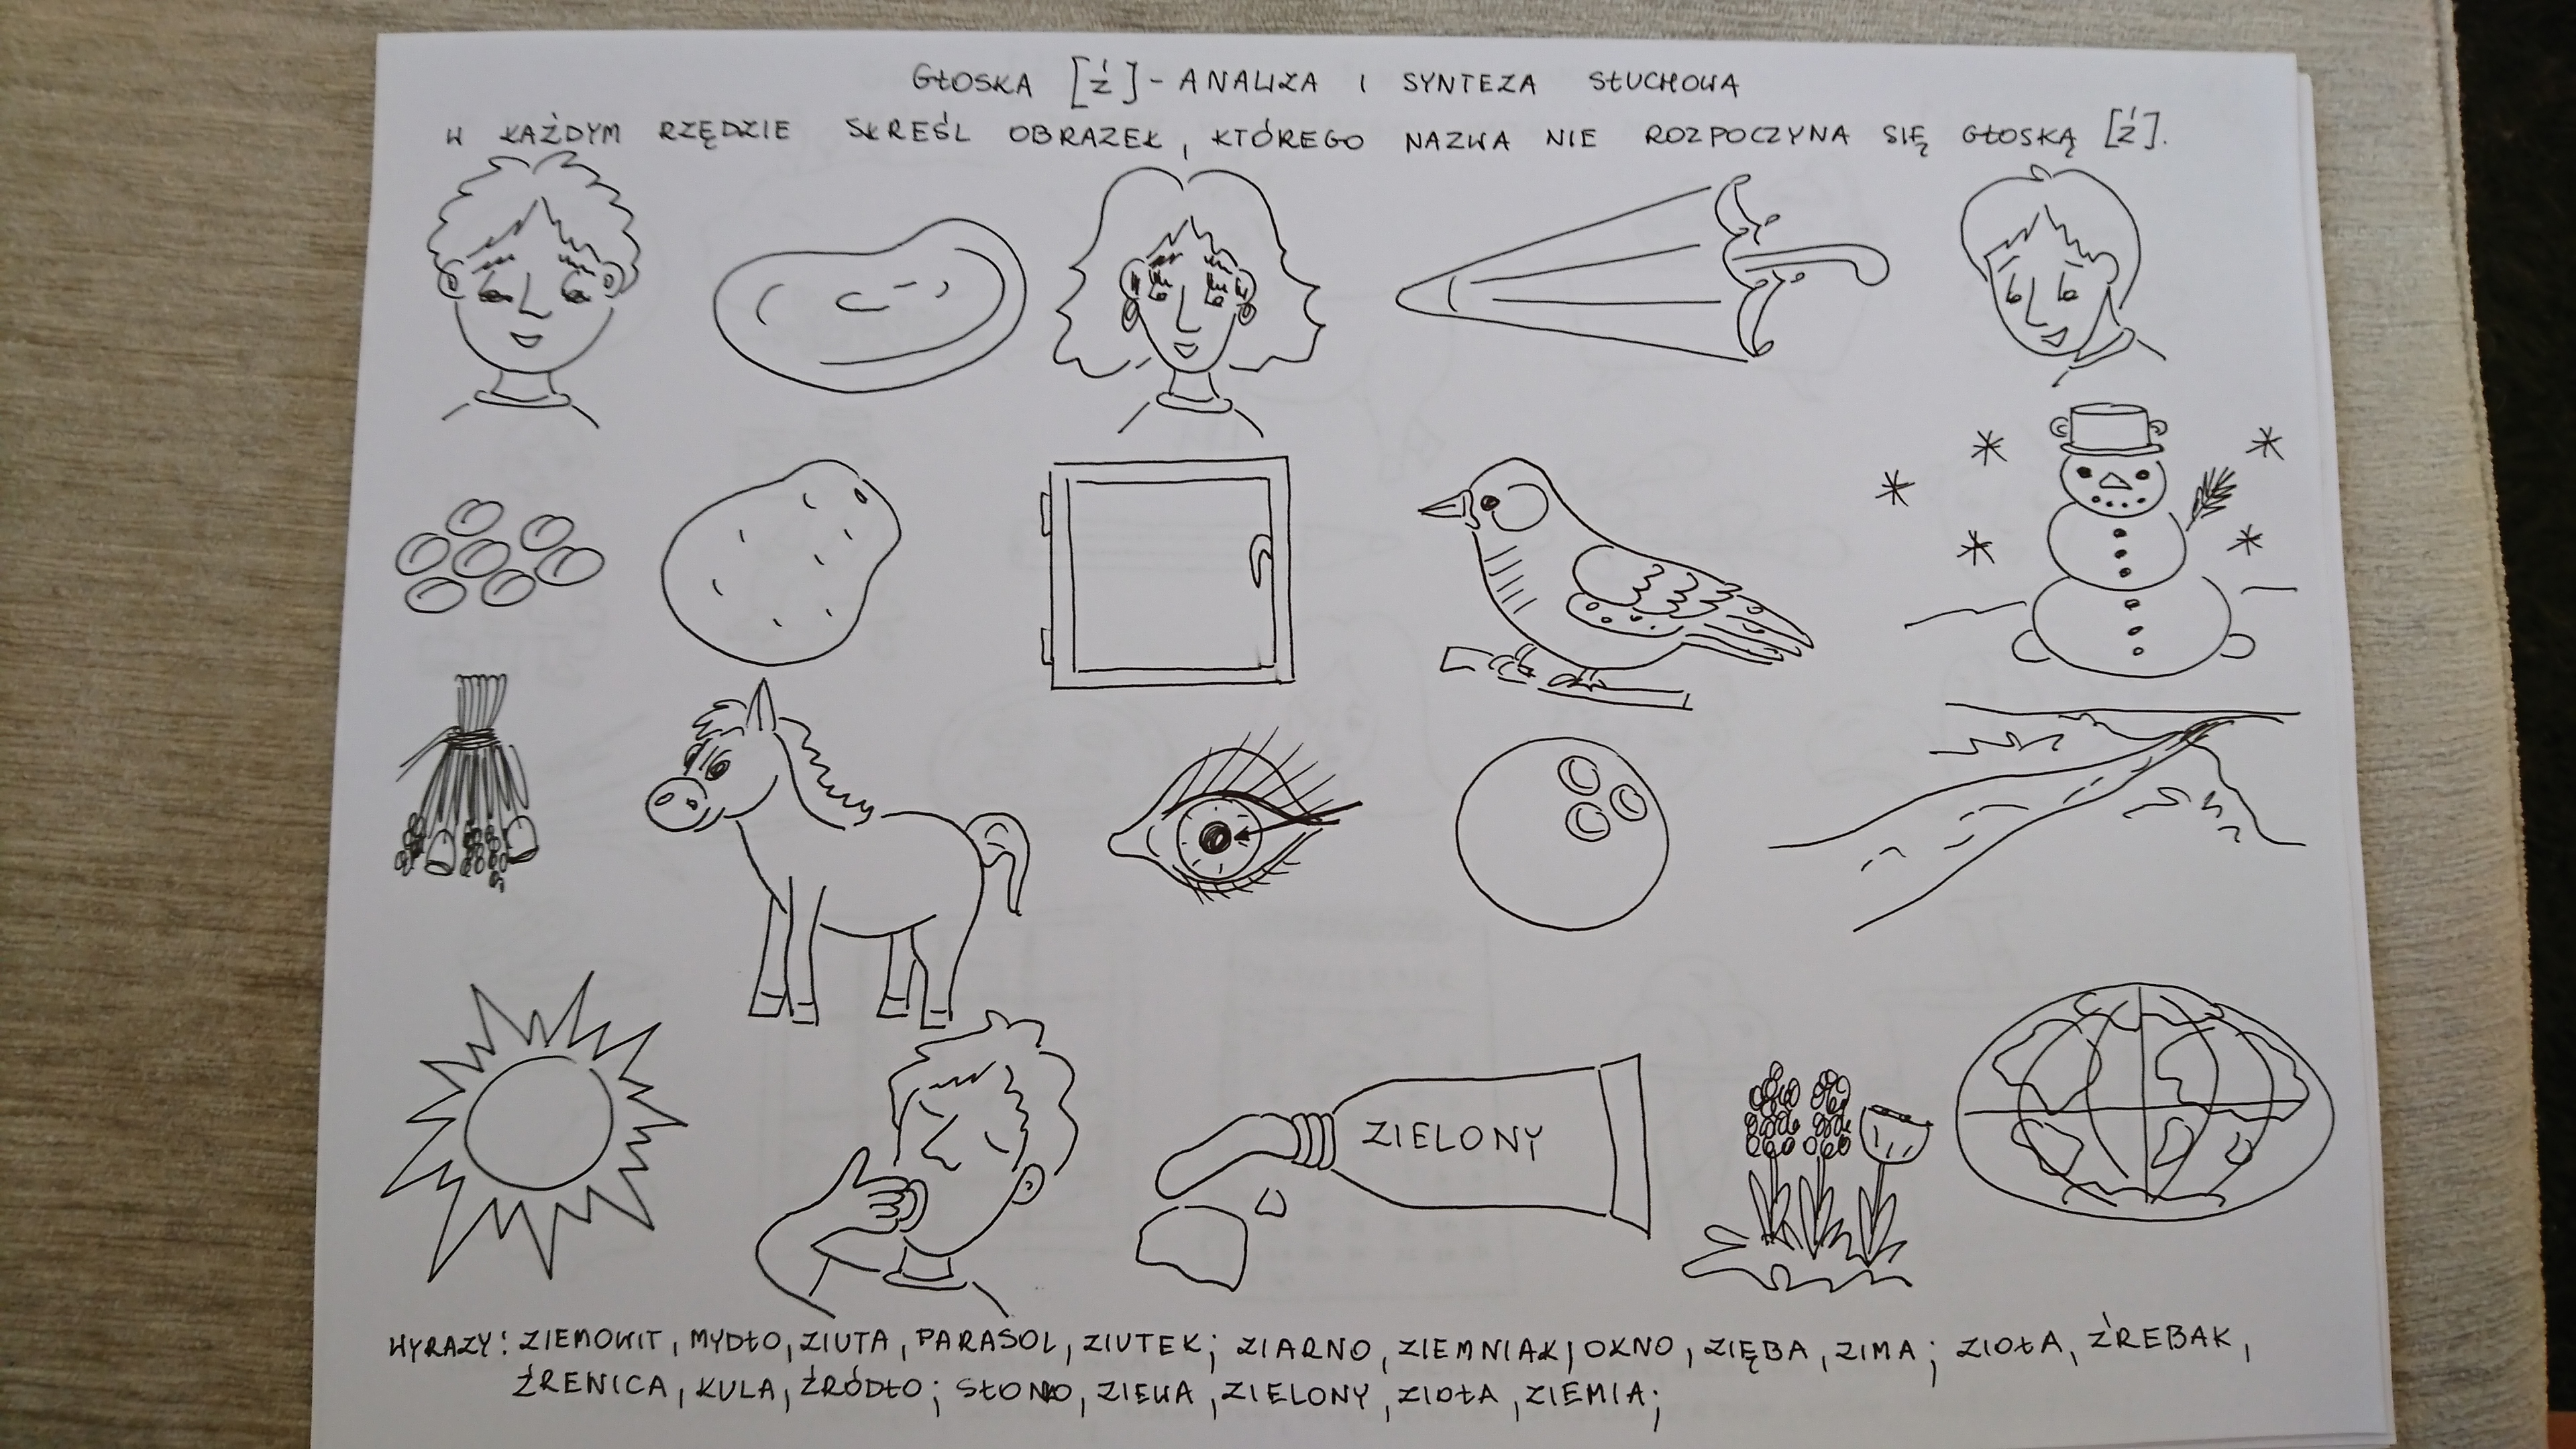 GŁOSKA [ź] - ANALIZA I SYNTEZA SŁUCHOWA
W KAŻDYM RZĘDZIE SKREŚL OBRAZEK, KTÓREGO NAZWA NIE ROZPOCZYNA SIĘ GŁOSKĄ [ź].
ZIELONY
WYRAZY: ZIEMOWIT, MYDŁO, ZIUTA, PARASOL, ZIUTEK; ZIARNO, ZIEMNIAK, OKNO, ZIĘBA, ZIMA; ZIOŁA, ŹREBAK,
ŹRENICA, KULA, ŹRÓDŁO; SŁONO, ZIEWA, ZIELONY, ZIOŁA, ZIEMIA;